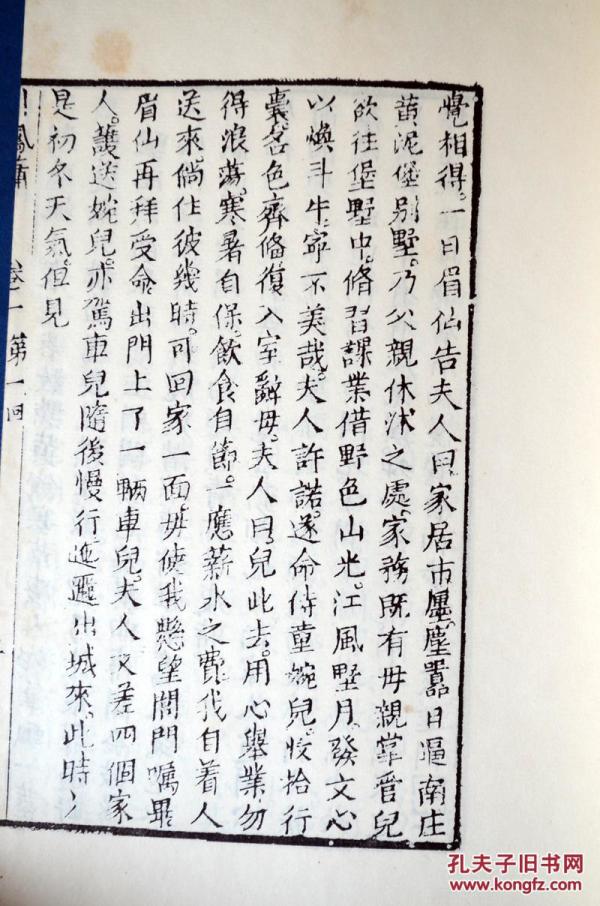 覺相得。一日眉仙告夫人曰。家居市廛。塵囂日逼。南庄
黄泥堡别墅。乃父親休沐之處。家務既有母親掌管。兒
欲往堡墅中。脩習課業。借野色山光。江風墅月。發文心
以煥斗牛。寧不美哉。夫人許諾。遂命侍童婉兒。收拾行
囊。各色齊脩。復入室辭母。夫人曰。兒此去。用心舉業。勿
得浪蕩。寒暑自保。飲食自節。一應薪水之費。我自着人
送來。倘住彼幾時。可回家一面。毋使我懸望閭門。囑畢。
眉仙再拜受命。出門上了一輛車兒。夫人又差四個家
人。護送婉兒。亦駕車兒隨後慢行。迤邐出城來。此時
是初冬天氣。但見
鳳簫 卷一 第一回
孔夫子旧书网
www.kongfz.com